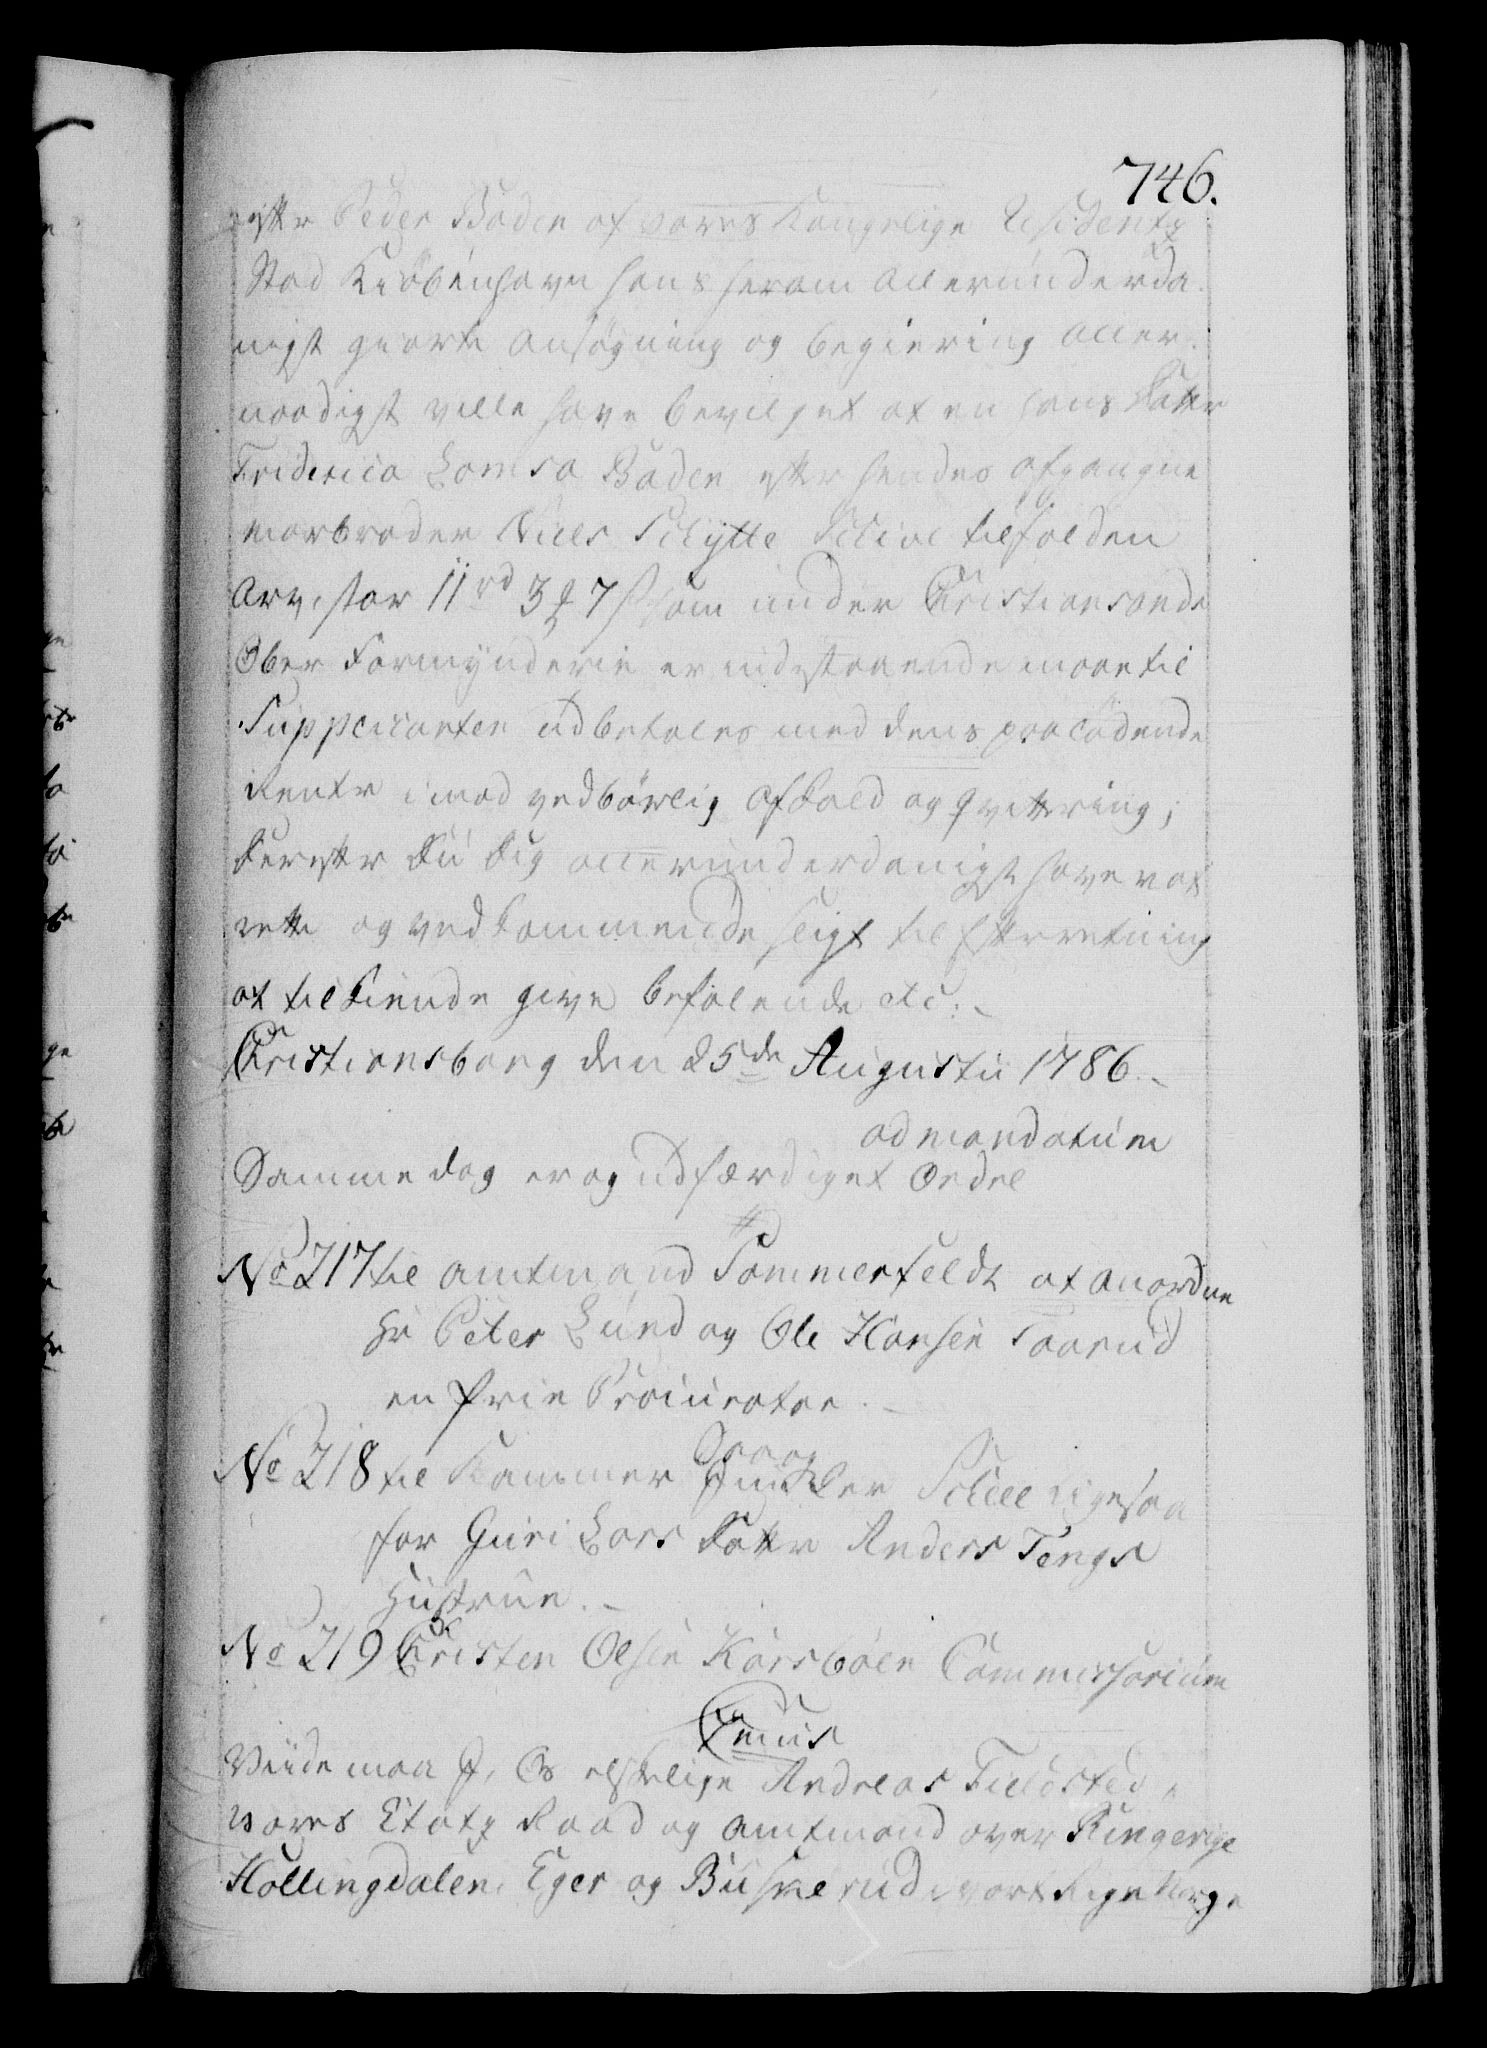 746.
efter Peder Baden af vores Kongelige Residentz
Stad Kiöbenhavn hans herom allerunderda-
nigst giorte ansøgning og begiering aller-
naadigst ville have bevilget at en hans Datter
Friderica Lovisa Baden efter hendes afgangne
morbroder Niels Schytte tilfalden
Arv, stor 11 rd 3 ₰ 7 ß som under Christiansands
Ober Formynderie er indestaaende maae til
Supplicanten udbetales med dens paalödende
Rente imod vedbörlig Afkald og qvittering;
derefter du dig allerunderdanigst have at
rette og vedkommende sligt til Efterretning
at tilkiende give befalende etc:
Christiansborg den 25de Augustii 1786.
ad mandatum
Samme dag er og udfærdiget Ordre
No 217 til amtmand Sommerfeldt at anordne
Hr Peter Lund og Ole Hansen Saarud
en frie Procurator.
No 218 til Kammer Junker Schell ligesaa
for Guri Lars Datter Anders Tengs
Hustrue.
No 219 Christen Olsen Korsböen Commissorium
Xmus
Viide maa I, Os elskelige Andreas Fieldsted,
vores Etatz Raad og amtmand over Ringerige
Hallingdalen, Eger og Buskerud i vort Rige Norge